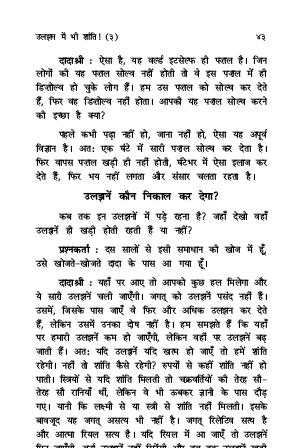 उलझन में भी शांति! (३) ४३
दादाश्री : ऐसा है, यह वर्ल्ड इटसेल्फ ही पज़ल है। जिन
लोगों की यह पज़ल सोल्व नहीं होती तो वे इस पज़ल में ही
डिज़ोल्व हो चुके लोग हैं। हम उस पज़ल को सोल्व कर देते
हैं, फिर वह डिज़ोल्व नहीं होता। आपकी यह पज़ल सोल्व करने
की इच्छा है क्या?
पहले कभी पढ़ा नहीं हो, जाना नहीं हो, ऐसा यह अपूर्व
विज्ञान है। अत: एक घंटे में सारी पज़ल सोल्व कर देता है।
फिर वापस पज़ल खड़ी ही नहीं होती, घंटेभर में ऐसा इलाज कर
देते हैं, फिर भय नहीं लगता और संसार चलता रहता है।
उलझनें कौन निकाल कर देगा?
कब तक इन उलझनों में पड़े रहना है? जहाँ देखो वहाँ
उलझनें ही खड़ी होती रहती हैं या नहीं?
प्रश्नकर्ता : दस सालों से इसी समाधान की खोज में हूँ,
उसे खोजते-खोजते दादा के पास आ गया हूँ।
दादाश्री : यहाँ पर आए तो आपको कुछ हल मिलेगा और
ये सारी उलझनें चली जाएँगी। जगत् को उलझनें पसंद नहीं हैं।
उसमें, जिसके पास जाएँ वे फिर और अधिक उलझन कर देते
हैं, लेकिन उसमें उनका दोष नहीं है। हम समझते हैं कि यहाँ
पर हमारी उलझनें कम हो जाएँगी, लेकिन वहाँ पर उलझनें बढ़
जाती हैं। अत: यदि उलझनें यदि खत्म हो जाएँ तो हमें शांति
रहेगी। नहीं तो शांति कैसे रहेगी? रुपयों से कहीं शांति नहीं हो
पाती। स्त्रियों से यदि शांति मिलती तो चक्रवर्तियों की तेरह सौ-
तेरह सौ रानियाँ थीं, लेकिन वे भी ऊबकर ज्ञानी के पास दौड़
गए। यानी कि लक्ष्मी से या स्त्री से शांति नहीं मिलती। इसके
बावजूद यह जगत् असत्य भी नहीं है। जगत् रिलेटिव सत्य है
और आत्मा रियल सत्य है। यदि रियल में आ जाएँ तो उलझनें